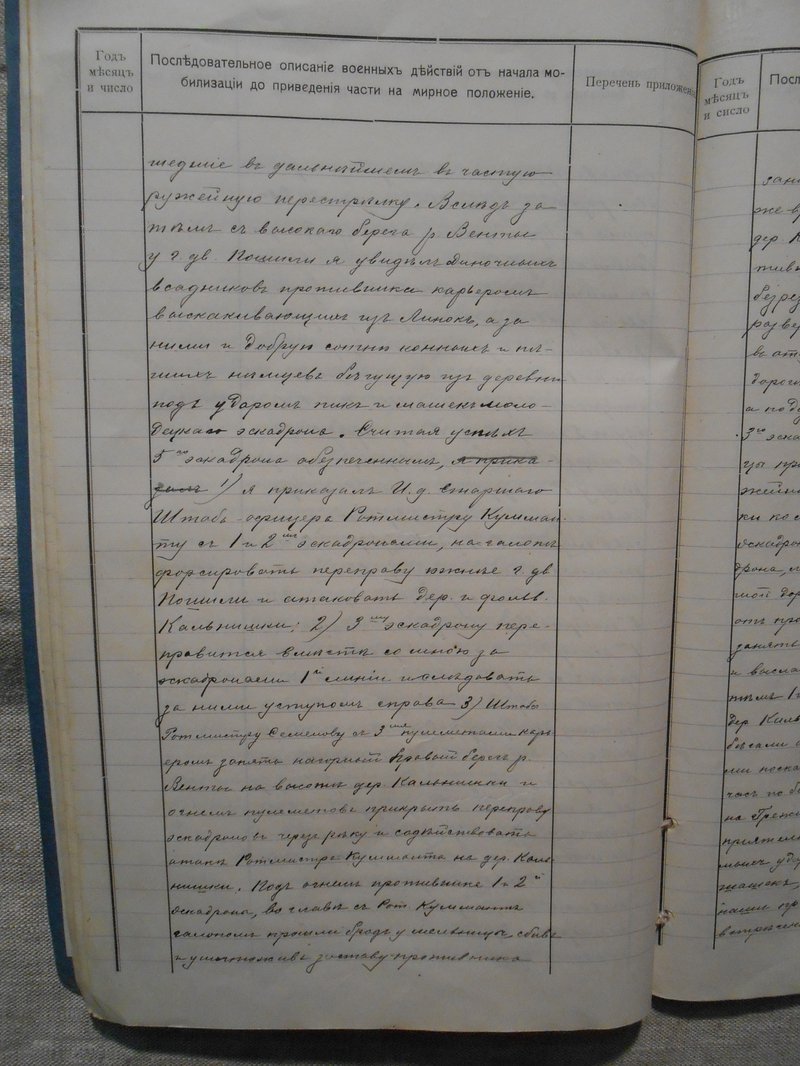 Годъ
мѣсяцъ
и число
Послѣдовательное описаніе военныхъ дѣйствій отъ начала мо-
билизаціи до приведенія части на мирное положеніе.
Перечень приложені
шедшіе въ дальнѣйшемъ въ частую
ружейную перестрѣлку. Вслѣдъ за
тѣмъ съ высокаго берега р. Венты
у г. дв. Пошили я увидѣлъ одиночныхъ
всадниковъ противника карьеромъ
выскакивающихъ изъ Линокъ, а за
ними и добрую сотню конныхъ и пѣ-
шихъ нѣмцевъ бѣгущую изъ деревни
подъ ударомъ пикъ и шашекъ моло-
децкаго эскадрона. Считая успѣхъ
5го эскадрона обезпеченнымъ, я прика-
залъ 1) я приказалъ И. д. Старшаго
Штабъ-офицера Ротмистру Кумман-
ту съ 1 и 2мъ эскадронами, на галопѣ
форсировать переправу южнѣе г. дв.
Пошили и атаковать дер. и фольв.
Кальнишки; 2) 3му эскадрону пере-
правится вмѣстѣ со мною за
эскадронами 1й линіи и слѣдовать
за ними уступомъ справа 3) Штабъ
Ротмистру Семенову съ 3мя пулеметами карь-
еромъ занять нагорный правый берегъ р.
Венты на высотѣ дер. Кальнишки и
огнемъ пулеметовъ прикрыть переправу
эскадроновъ черезъ рѣку и содѣйствовать
атакѣ Ротмистра Кумманта на дер. Каль-
нишки. Подъ огнемъ противника 1 и 2й
эскадрона, во главѣ съ Рот. Куммантъ
галопомъ прошли бродъ у мельницы, сбивъ
и уничтоживъ заставу противника
Годъ
мѣсяцъ
и число
Посл
дер. К
развер
въ от
дорог
а подъ
3го эска
эскадрон
дрона,
отъ про
занять
и высла
тѣмъ 1
дер. Каль